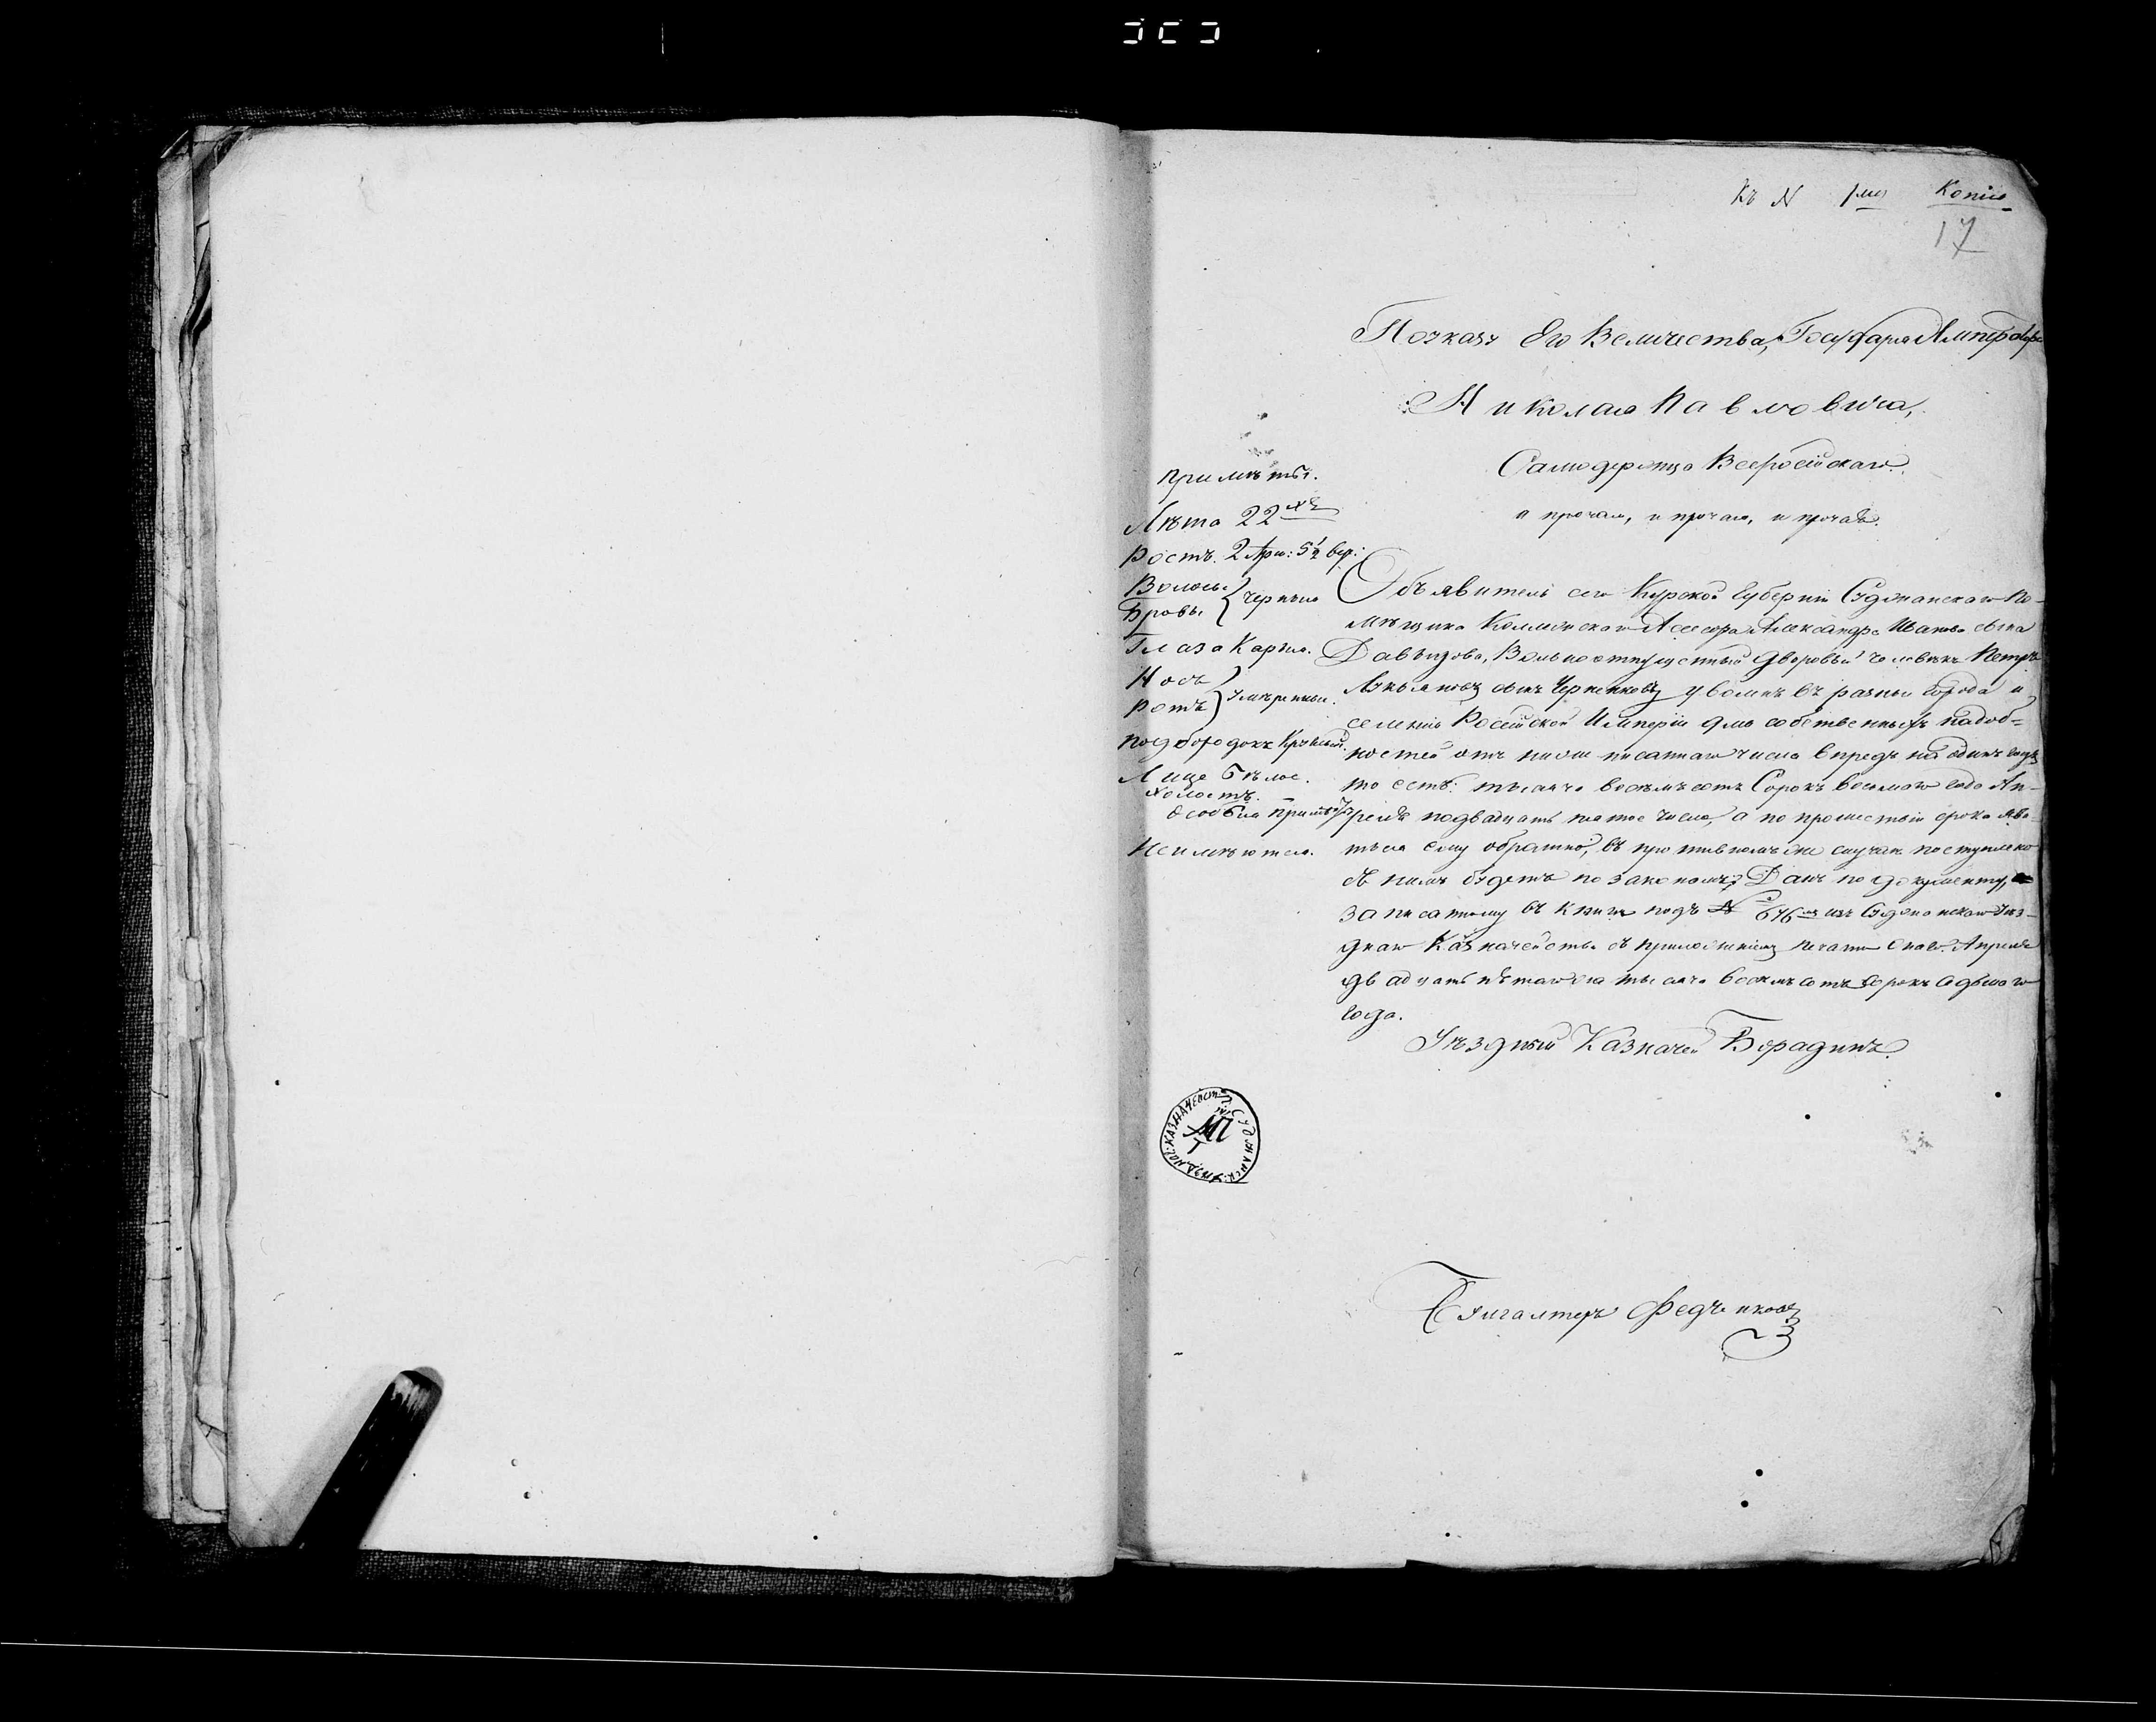 Къ N 1му Копія
17
По указу Его Величества, Государя Императора
Николая Павловича,
Самодержца Всероссійскаго.
и прочая, и прочая, и прочая.
Примѣты.
Лѣта 22хъ
Ростъ. 2 Арш: 5 1/2 вер:
Волосы
Бровы } черныя
Глаза Карыя.
Носъ
Ротъ } умѣренныи.
Подбородокъ Круглый.
Лице бѣлое.
Холостъ.
Особыя примѣты
Неимѣются.
Объявитель сего Курской Губерніи Суджанскаго По-
мѣщика Коллежскаго Асессора Александра Иванова сына
Давыдова, Вольноотпущенный дворовый человѣкъ Петръ
Лукьяновъ сынъ Черненковъ уволенъ въ разныи города и
селенія Россійской Имперіи для собственныхъ надоб-
ностей отъ ниже писаннаго числа впредь на одинъ годъ
то есть: тысяча восемьсотъ Сорокъ восьмаго года Ап-
реля подвадцать пятое число, а по прошествіи срока явит-
ься ему обратно, въ противномъ же случаѣ поступлено
съ нимъ будетъ по законамъ; Данъ по документу,
записанному въ книги подъ N 676 изъ Суджанскаго Уѣз-
днаго Казначейства съ приложеніемъ печати онаго. Апреля
двадцать пятаго дня тысяча восемьсотъ сорокъ седьмаго
года.
Уѣздный Казначей Борадинъ.
СУДЖАНСК: УѢЗДНОГ: КАЗНАЧЕЙСТ:
МП
Бухгалтеръ